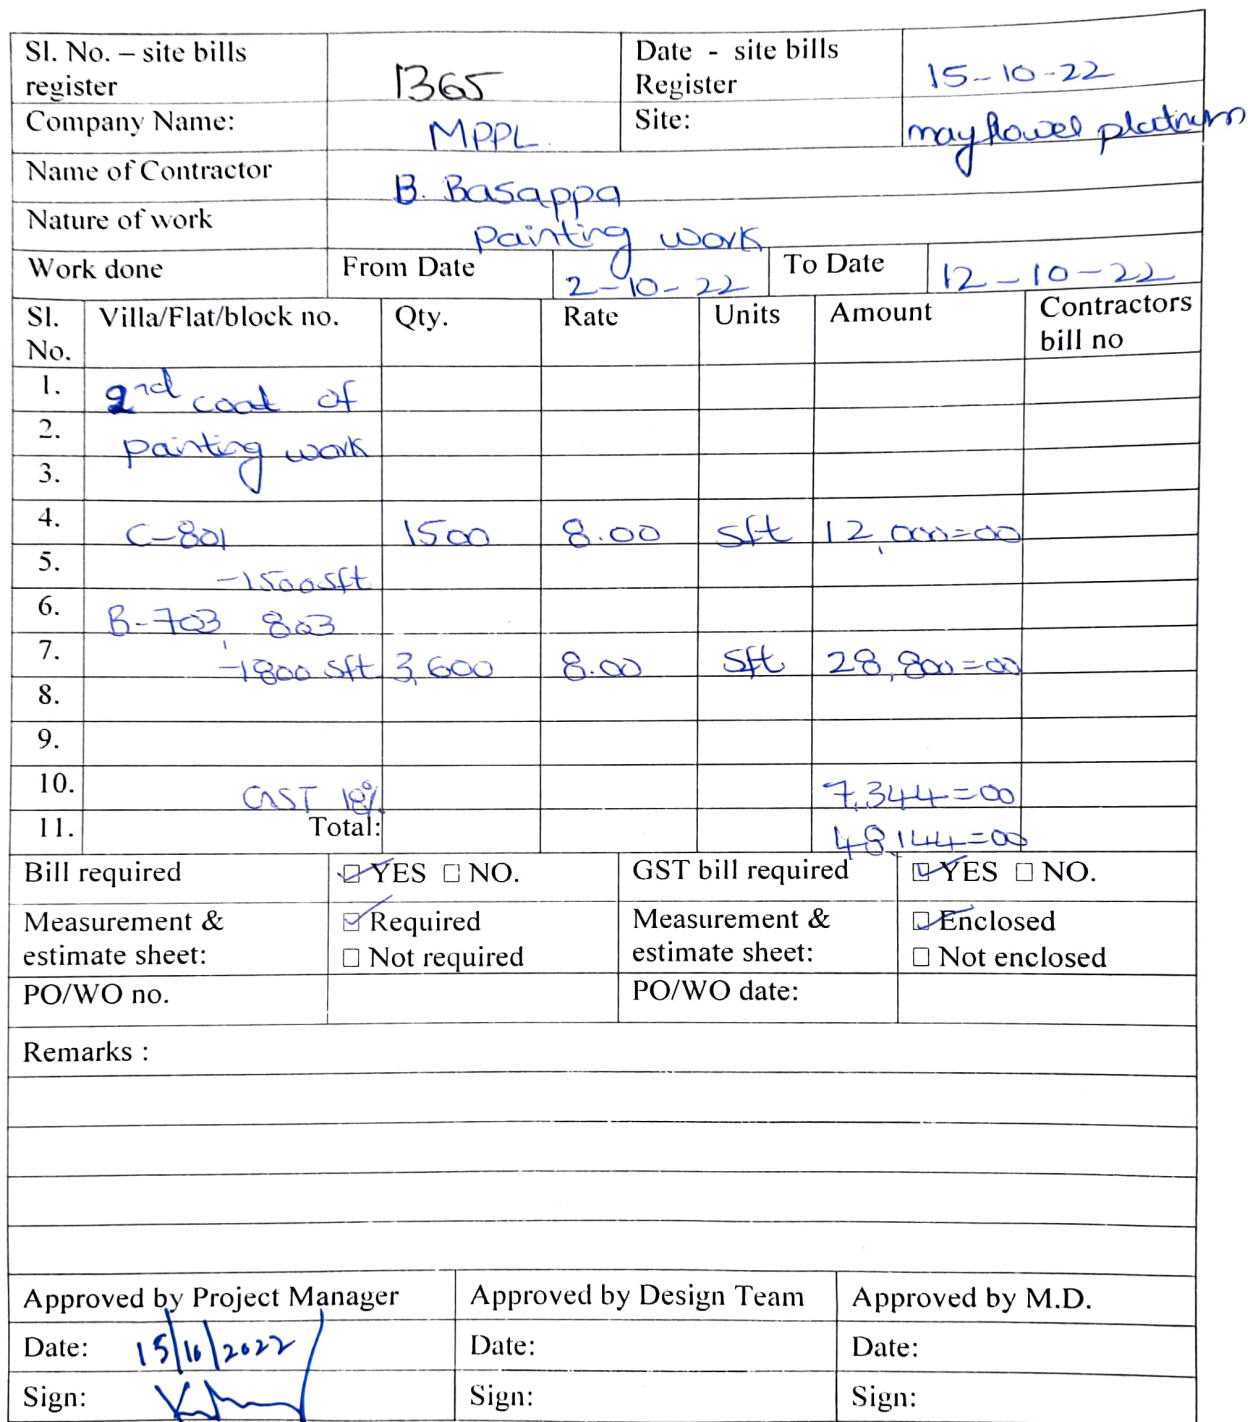 Sl. No. – site bills register 1365 Date - site bills Register 15-10-22
Company Name: MPPL Site: mayflower platinum
Name of Contractor B. Basappa
Nature of work painting work
Work done From Date 2-10-22 To Date 12-10-22
Sl. No. Villa/Flat/block no. Qty. Rate Units Amount Contractors bill no
1. 2nd coat of
2. painting work
3.
4. C-801 1500 8.00 sft 12,000=00
5. -1500sft
6. B-703, 803
7. -1800 sft 3,600 8.00 sft 28,800=00
8.
9.
10. GST 18% 7,344=00
11. Total: 48,144=00
Bill required ☑ YES ☐ NO. GST bill required ☑ YES ☐ NO.
Measurement & estimate sheet: ☑ Required ☐ Not required Measurement & estimate sheet: ☑ Enclosed ☐ Not enclosed
PO/WO no. PO/WO date:
Remarks :
Approved by Project Manager Approved by Design Team Approved by M.D.
Date: 15/10/2022 Date: Date:
Sign: Sign: Sign: